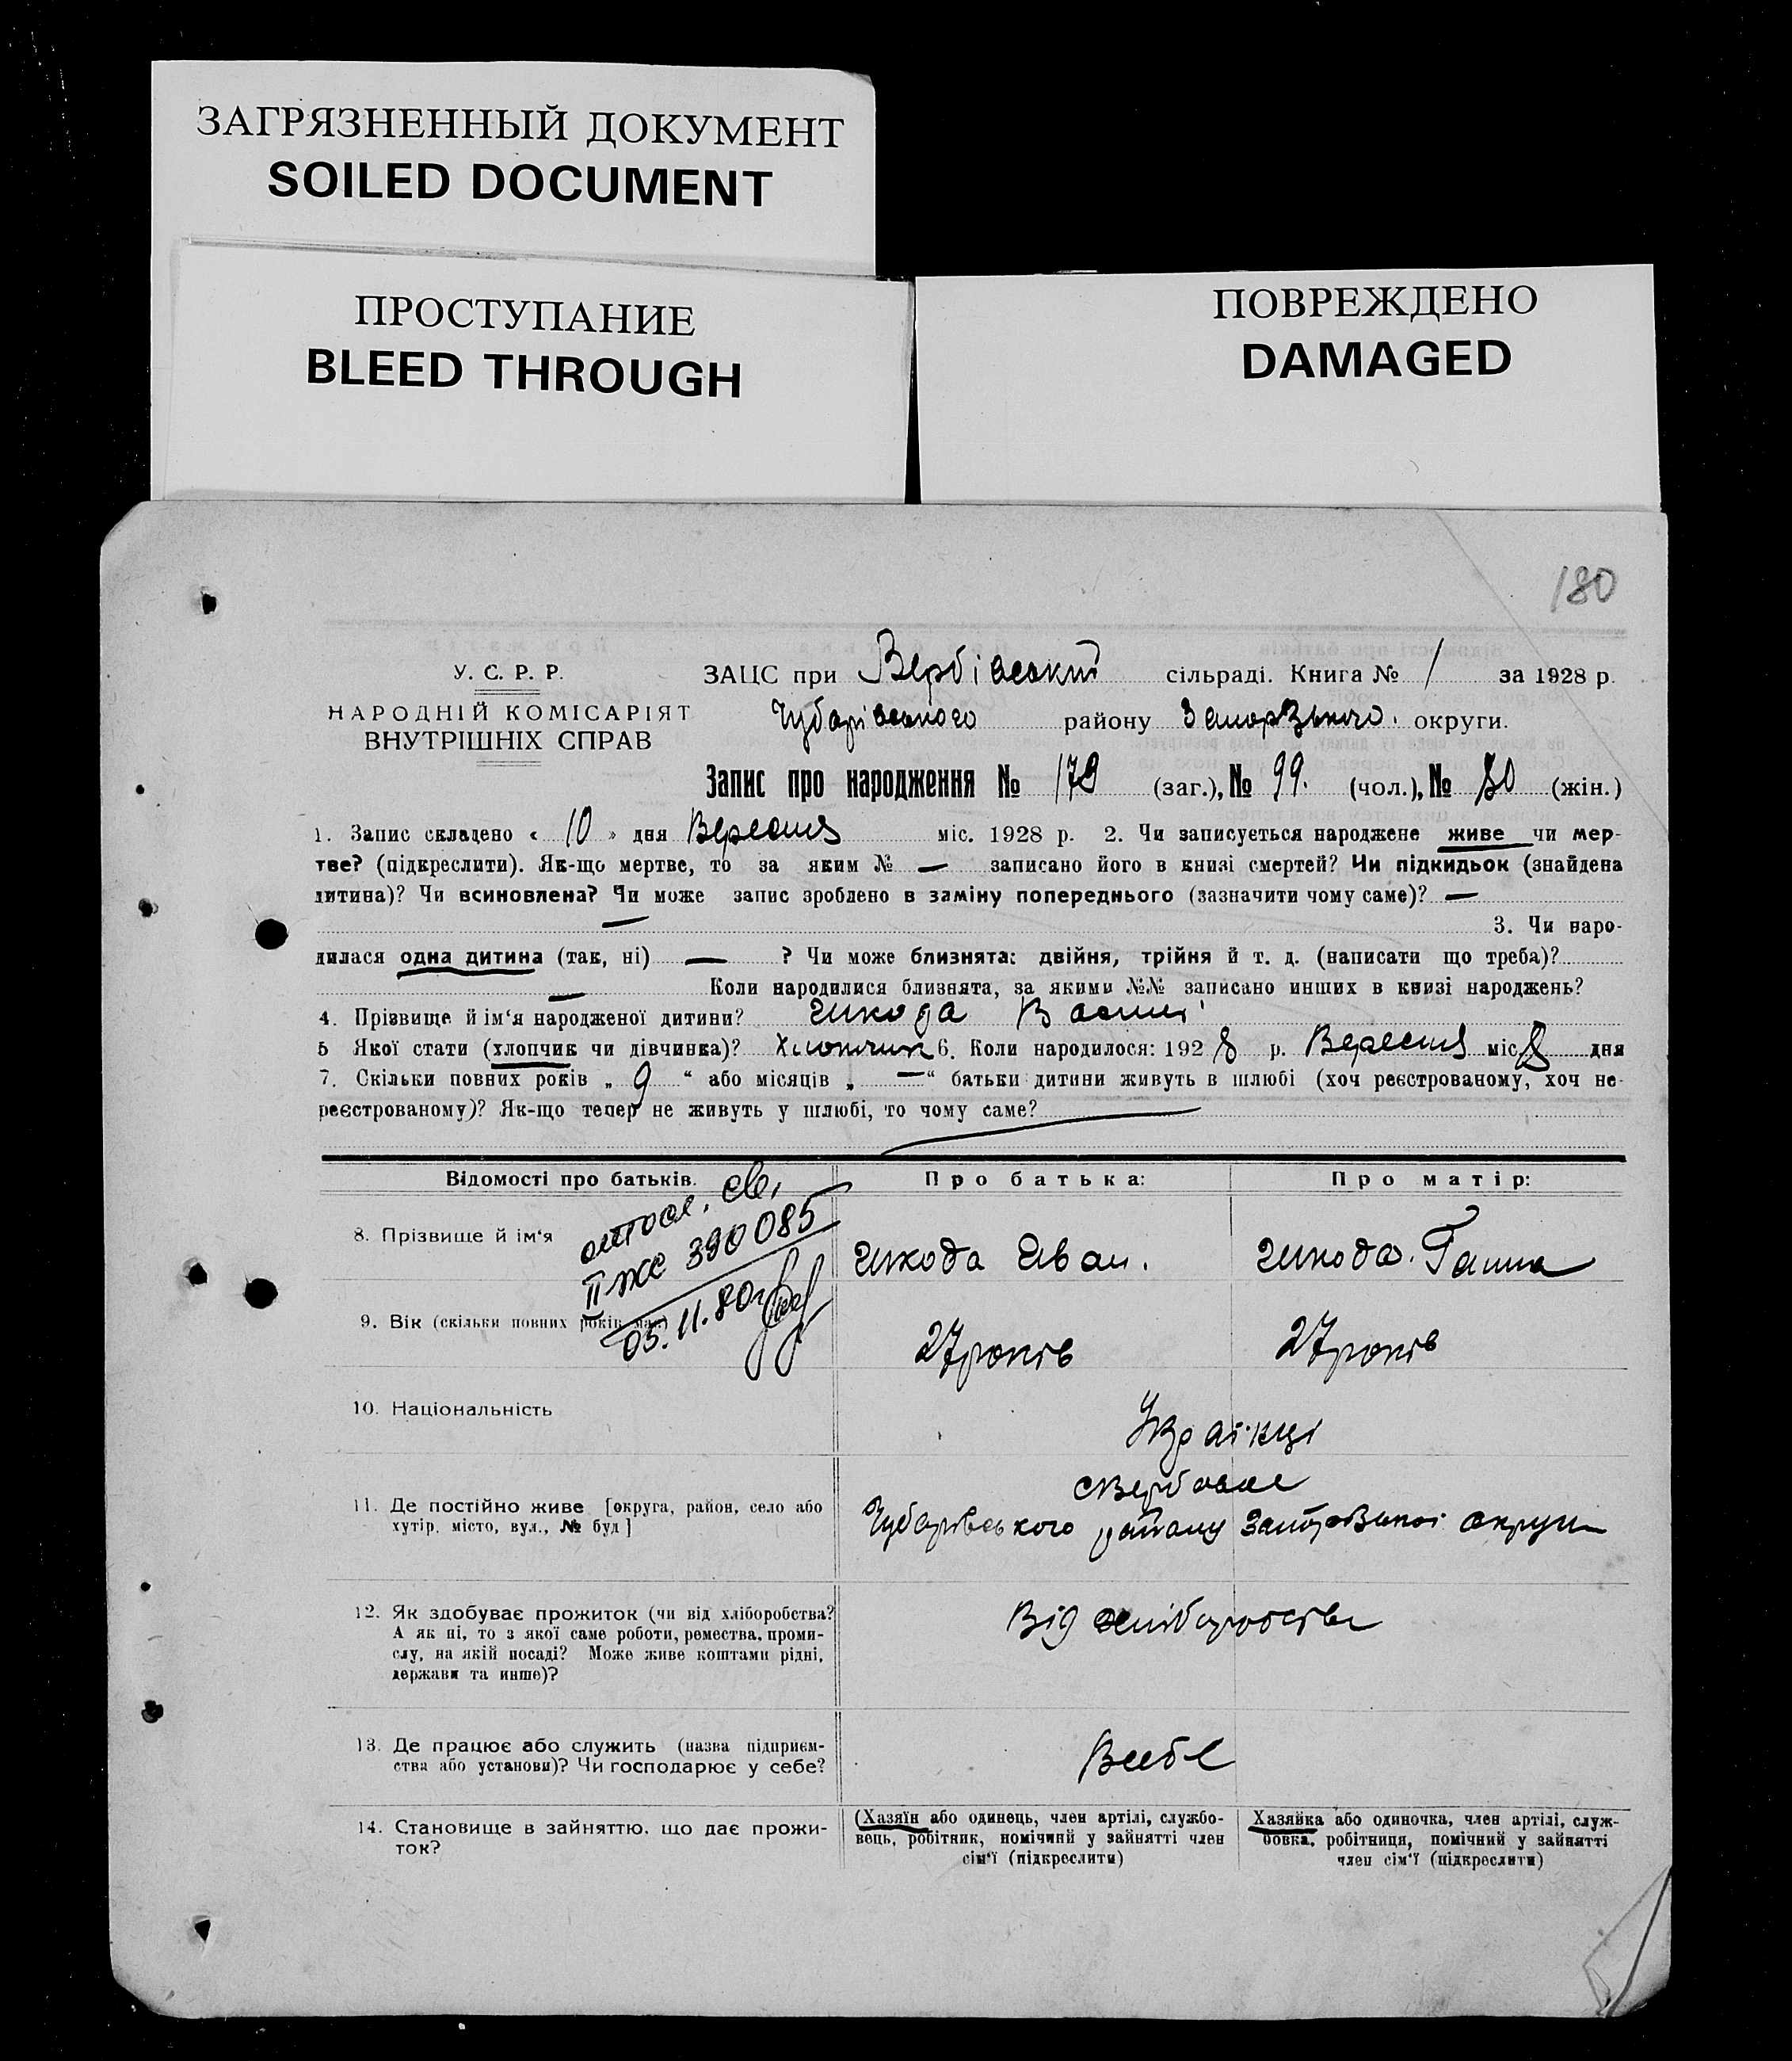 ЗАГРЯЗНЕННЫЙ ДОКУМЕНТ
SOILED DOCUMENT
ПРОСТУПАНИЕ
BLEED THROUGH
ПОВРЕЖДЕНО
DAMAGED
180
У. С. Р. Р.
НАРОДНІЙ КОМІСАРІЯТ
ВНУТРІШНІХ СПРАВ
ЗАЦС при Вербівській сільраді. Книга № 1 за 1928 р.
Чубарівського району Запорізького округи.
Запис про народження № 179 (заг.), № 99. (чол.), № 80 (жін.)
1. Запис складено « 10 » дня Вересня міс. 1928 р. 2. Чи записується народжене живе чи мер-
тве? (підкреслити). Як-що мертве, то за яким № — записано його в книзі смертей? Чи підкидьок (знайдена
дитина)? Чи всиновлена? Чи може запис зроблено в заміну попереднього (зазначити чому саме)? —
— 3. Чи наро-
дилася одна дитина (так, ні) — ? Чи може близнята: двійня, трійня й т. д. (написати що треба)?
— Коли народилися близнята, за якими №№ записано инших в книзі народжень?
4. Прізвище й ім'я народженої дитини? Шкода Василь
5 Якої стати (хлопчик чи дівчинка)? Хлопчик 6. Коли народилося: 1928 р. Вересня міс 8 дня
7. Скільки повних років „ 9 “ або місяців „ — “ батьки дитини живуть в шлюбі (хоч реєстрованому, хоч не-
реєстрованому)? Як-що тепер не живуть у шлюбі, то чому саме?
Відомості про батьків. Про батька: Про матір:
св.
II жс 390085
05.11.80г
8. Прізвище й ім'я Шкода Иван. Шкода Ганна
9. Вік (скільки повних років має) 27 років 27 років
10. Національність Українці
с Вербове
11. Де постійно живе [округа, район, село або
хутір, місто, вул., № буд] Чубарівського району Запорізької округи
12. Як здобуває прожиток (чи від хліборобства? Від хліборобства
А як ні, то з якої саме роботи, ремества, проми-
слу, на якій посаді? Може живе коштами рідні,
держави та инше)?
13. Де працює або служить (назва підприєм-
ства або установи)? Чи господарює у себе? Всебе
14. Становище в зайняттю, що дає прожи-
ток?
(Хазяїн або одинець, член артілі, службо-
вець, робітник, помічний у зайнятті член
сім'ї (підкреслити)
Хазяйка або одиночка, член артілі, служ-
бовка, робітниця, помічний у зайнятті
член сім'ї (підкреслити)